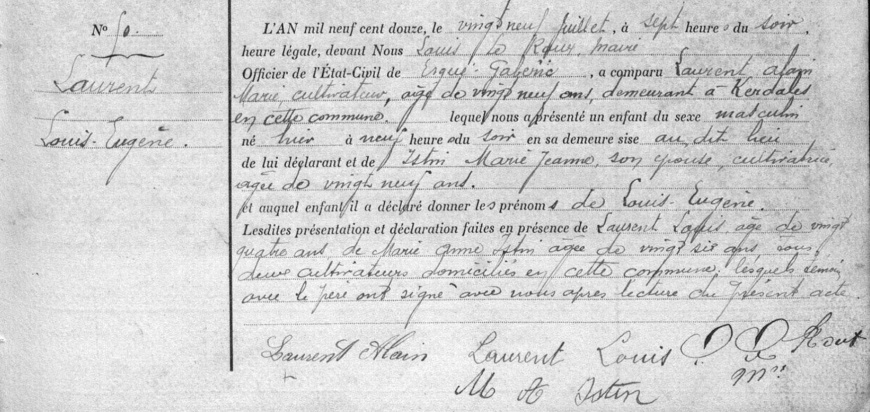 N° 50.
Laurent
Louis-Eugène.
L'AN mil neuf cent douze, le vingt neuf juillet, à sept heures du soir,
heure légale, devant Nous Louis Le Roux, maire
Officier de l'État-Civil de Ergué-Gabéric, a comparu Laurent Alain
Marie, cultivateur, âgé de vingt neuf ans, demeurant à Kerdalès
en cette commune. lequel nous a présenté un enfant du sexe masculin
né hier à neuf heures du soir en sa demeure sise au dit lieu
de lui déclarant et de Istin Marie Jeanne, son épouse, cultivatrice,
âgée de vingt neuf ans.
et auquel enfant il a déclaré donner les prénoms de Louis-Eugène.
Lesdites présentation et déclaration faites en présence de Laurent Louis âgé de vingt
quatre ans, de Marie Anne Istin âgée de vingt six ans, tous
deux cultivateurs domiciliés en cette commune; lesquels témoins
avec le père ont signé avec nous après lecture du présent acte.
Laurent Alain Laurent Louis Rout
M A Istin